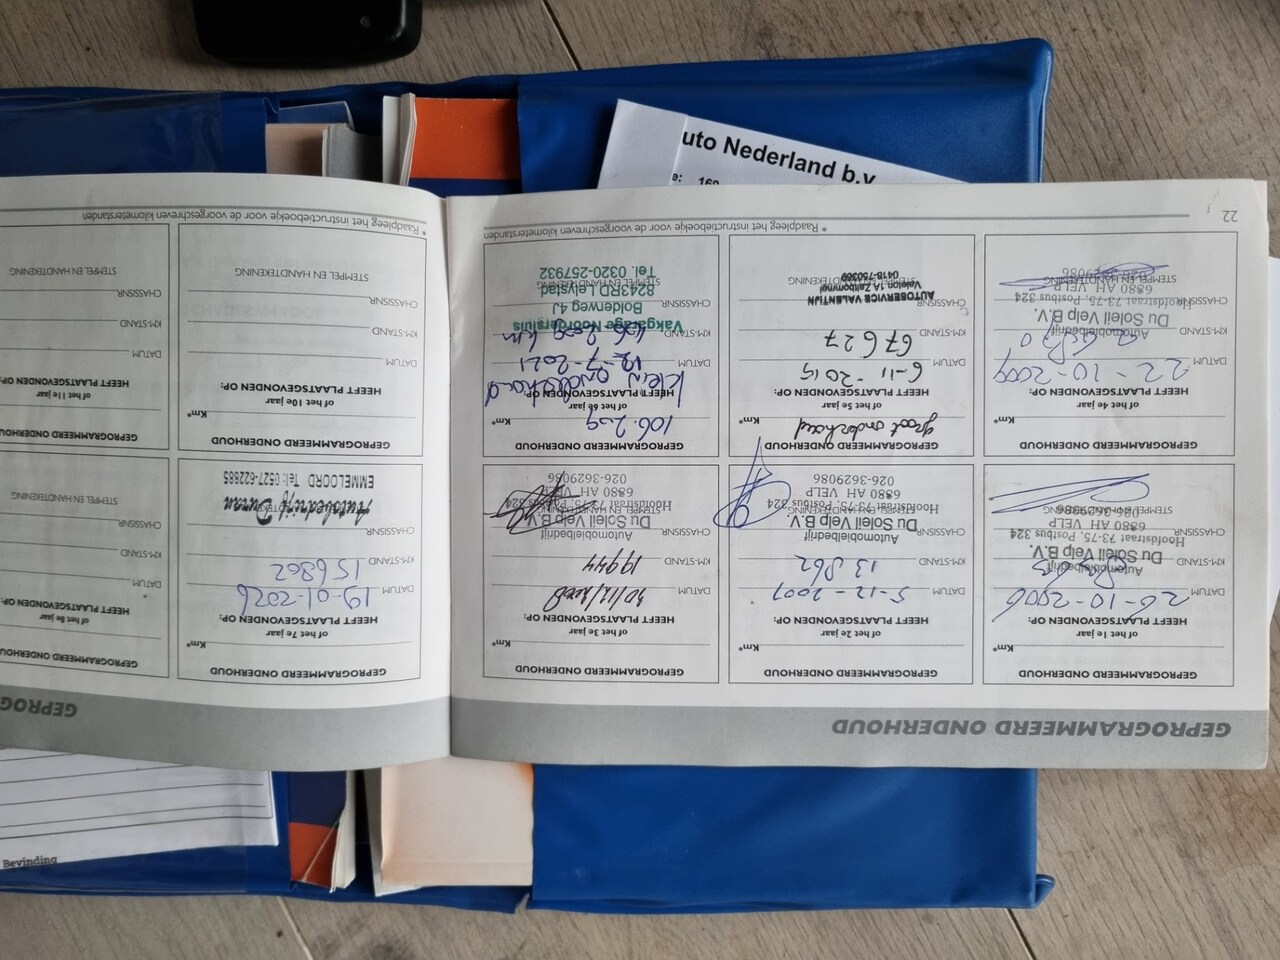 uto Nederland b.v.
GEPROGRAMMEERD ONDERHOUD
GEPROGRAMMEERD ONDERHOUD
Km*
of het 1e jaar
HEEFT PLAATSGEVONDEN OP:
DATUM 26-10-2006
KM-STAND
CHASSISNR
STEMPEL EN HANDTEKENING
Automobielbedrijf
Du Soleil Velp B.V.
Hoofdstraat 73-75, Postbus 324
6880 AH VELP
026-3629086
GEPROGRAMMEERD ONDERHOUD
Km*
of het 2e jaar
HEEFT PLAATSGEVONDEN OP:
DATUM 5-12-2007
KM-STAND 13862
CHASSISNR
STEMPEL EN HANDTEKENING
Automobielbedrijf
Du Soleil Velp B.V.
Hoofdstraat 73-75, Postbus 324
6880 AH VELP
026-3629086
GEPROGRAMMEERD ONDERHOUD
Km*
of het 3e jaar
HEEFT PLAATSGEVONDEN OP:
DATUM
KM-STAND 19944
CHASSISNR
STEMPEL EN HANDTEKENING
Automobielbedrijf
Du Soleil Velp B.V.
Hoofdstraat 73-75, Postbus 324
6880 AH VELP
026-3629086
GEPROGRAMMEERD ONDERHOUD
Km*
of het 4e jaar
HEEFT PLAATSGEVONDEN OP:
DATUM 22-10-2009
KM-STAND
CHASSISNR
STEMPEL EN HANDTEKENING
Automobielbedrijf
Du Soleil Velp B.V.
Hoofdstraat 73-75, Postbus 324
6880 AH VELP
026-3629086
GEPROGRAMMEERD ONDERHOUD
groot onderhoud Km*
of het 5e jaar
HEEFT PLAATSGEVONDEN OP:
DATUM 6-11-2015
KM-STAND 67627
CHASSISNR
STEMPEL EN HANDTEKENING
AUTOSERVICE VALENTIJN
Veleton 1A Zaltbommel
0418-750389
GEPROGRAMMEERD ONDERHOUD
106.209 Km*
of het 6e jaar
HEEFT PLAATSGEVONDEN OP:
klein onderhoud
DATUM 12-7-2021
KM-STAND
CHASSISNR
STEMPEL EN HANDTEKENING
Vakgarage Noordersluis
Bolderweg 4J
8243RD Lelystad
Tel. 0320-257932
22
* Raadpleeg het instructieboekje voor de voorgeschreven kilometerstanden
GEPROG
GEPROGRAMMEERD ONDERHOUD
Km*
of het 7e jaar
HEEFT PLAATSGEVONDEN OP:
DATUM 19-01-2026
KM-STAND 156802
CHASSISNR
Autobedrijf Duran
EMMELOORD Tel: 0527-622885
GEPROGRAMMEERD ONDERHOUD
of het 8e jaar
HEEFT PLAATSGEVONDEN OP:
DATUM
KM-STAND
CHASSISNR
STEMPEL EN HANDTEKENING
GEPROGRAMMEERD ONDERHOUD
Km*
of het 10e jaar
HEEFT PLAATSGEVONDEN OP:
DATUM
KM-STAND
CHASSISNR
STEMPEL EN HANDTEKENING
GEPROGRAMMEERD ONDERHOUD
of het 11e jaar
HEEFT PLAATSGEVONDEN OP:
DATUM
KM-STAND
CHASSISNR
STEMPEL EN HANDTEKENING
* Raadpleeg het instructieboekje voor de voorgeschreven kilometerstanden
Bevinding